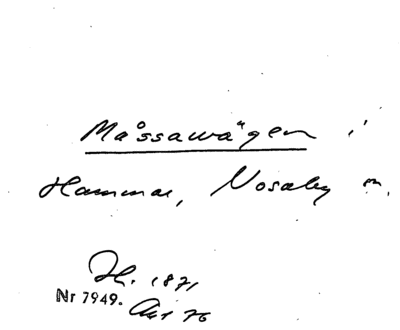 Måssawägen i
Hammar, Nosaby sn.
H. 1871
Nr 7949. Acc 76